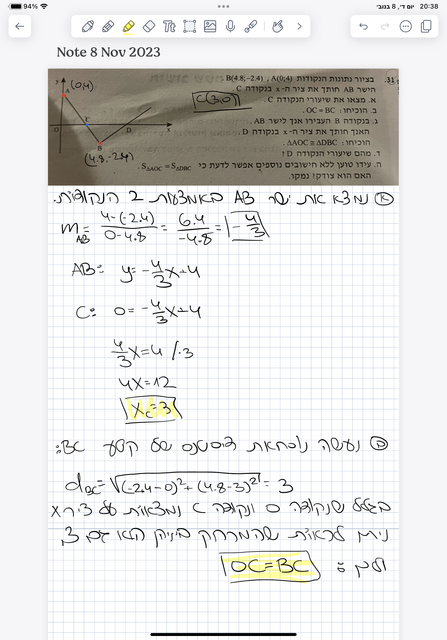 94%
20:38 יום ד׳, 8 בנוב׳
Note 8 Nov 2023
31. בציור נתונות הנקודות A(0;4), B(4.8;−2.4)
הישר AB חותך את ציר ה- x בנקודה C.
א. מצאו את שיעורי הנקודה C.
C(3,0)
ב. הוכיחו: OC = BC.
ג. בנקודה B העבירו אנך לישר AB.
האנך חותך את ציר ה-x בנקודה D.
הוכיחו: ΔAOC ≅ ΔDBC.
ד. מהם שיעורי הנקודה D?
ה. עידו טוען ללא חישובים נוספים אפשר לדעת כי SΔAOC = SΔDBC.
האם הוא צודק? נמקו.
y
(0,4)
A
C
O
D
x
B
(4.8,-2.4)
א) נמצא את ישר AB באמצעות 2 הנקודות.
mAB = 4-(-2.4)/0-4.8 = 6.4/-4.8 = -4/3
AB: y = -4/3x+4
C: 0 = -4/3x+4
4/3x=4 /·3
4x=12
xc=3
ב) נעשה נוסחאת דיסטנס של קטע BC:
dBC = √(-2.4-0)²+(4.8-3)² = 3
בגלל שנקודה O ונקודה C נמצאות על ציר X
ניתן לראות שהמרחק ביניהן הוא גם 3,
ולכן:
OC=BC